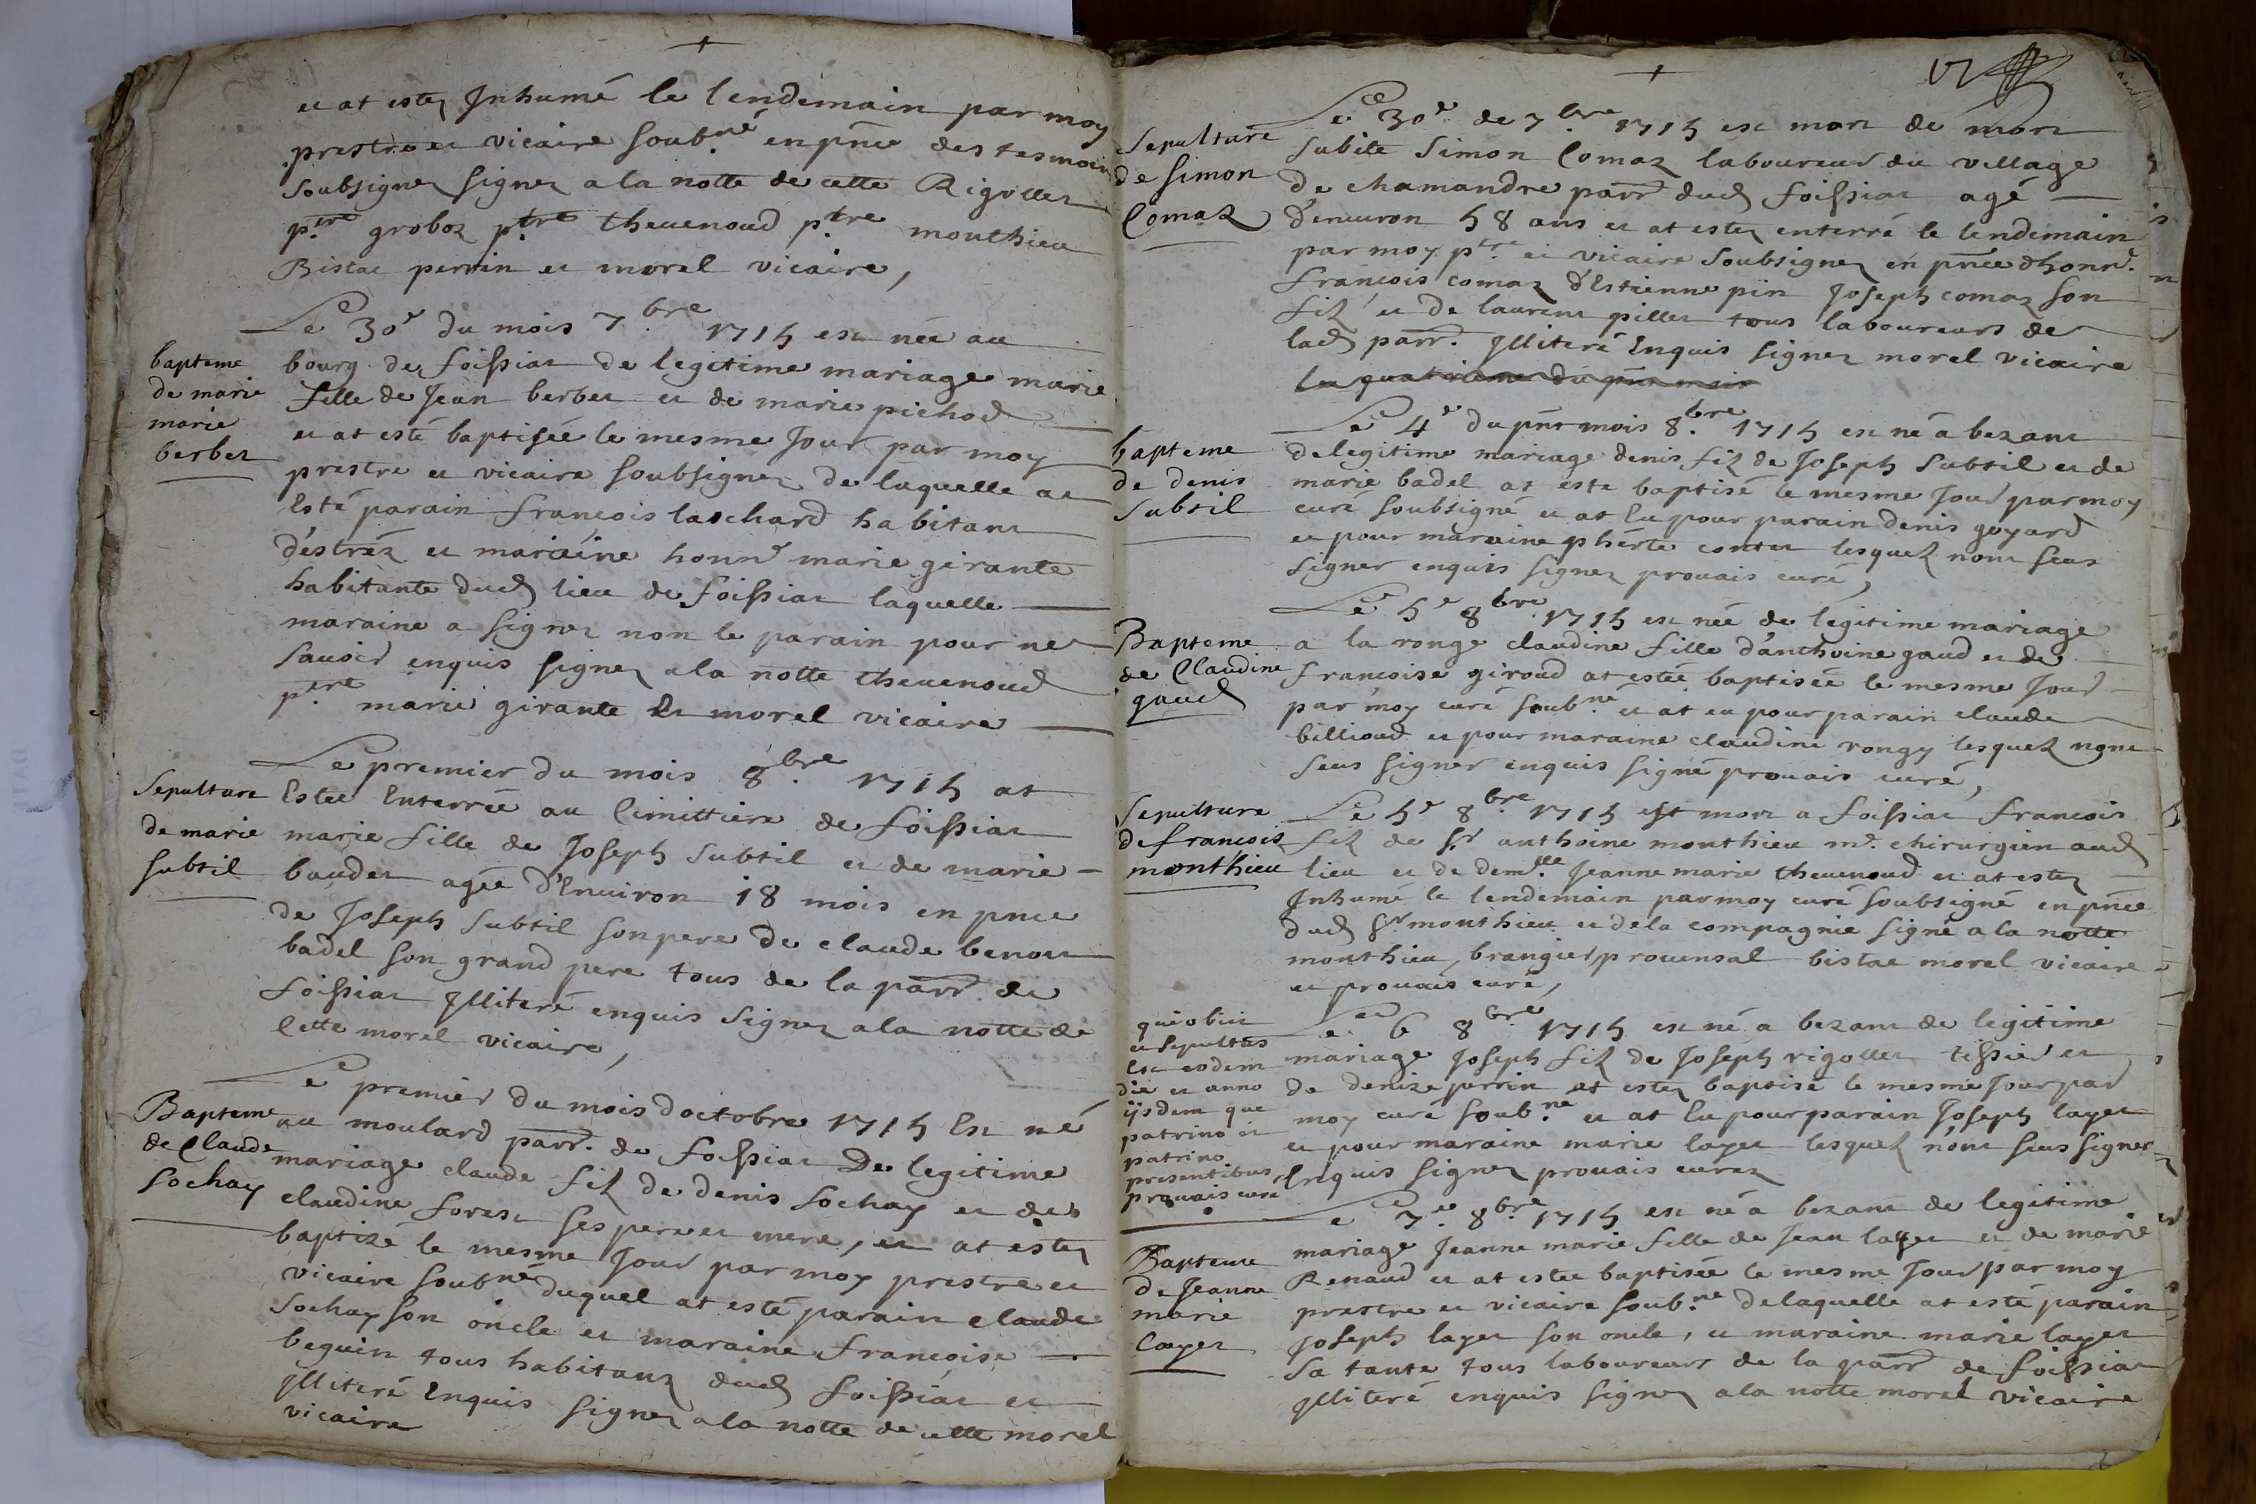 et at estez Inhumé le lendemain par moy
prestre et vicaire soub.né en pnce des tesmoins
soubsignez signez a la notte de cette Rigollet
p.tre groboz p.tre thevenoud p.tre monthieu
Bistac perrin et morel vicaire,
bapteme
de marie
marie
berbet
Le 30e du mois 7.bre 1715 est née au
bourg de foissiat de legitime mariage marie
fille de Jean berbet et de marie pichod
et at esté baptisée le mesme Jour par moy
prestre et vicaire soubsignez de laquelle at
Esté parain francois laschard habitant
d'éstréz et maraine honn.e marie girante
habitante dud lieu de foissiat laquelle
maraine a signez non le parain pour ne
savoir enquis signez a la notte thevenoud
p.tre marie girante Et morel vicaire
Sepulture
de marie
subtil
Le premier du mois 8.bre 1715 at
Estée Enterrée au Cimittiere de foissiat
marie fille de Joseph subtil et de marie
baudet agée d'Environ 18 mois en pnce
de Joseph subtil son pere de claude benoit
badel son grand pere tous de la parr. de
foissiat Illiteré enquis signez a la notte de
Cette morel vicaire,
Bapteme
de Claude
sochay
Le premier du mois doctobre 1715 Est né
au moulard parr. de foissiat De legitime
mariage claude fil de denis sochay et de
claudine forest ses pere et mere, et at estez
baptizé le mesme Jour par moy prestre et
vicaire soubné duquel at esté parain claude
sochay son oncle et maraine francoise
beguin tous habitanz dud foissiat et
Illiteré Enquis signez a la notte de cette morel
vicaire
Sepulture
de simon
Comaz
Le 30e de 7.bre 1715 est mort de mort
subite simon Comaz laboureur du village
de chamandre parr dud foissiat agé
d'environ 58 ans et at estez enterré le lendemain
par moy p.tre et vicaire soubsignez en pnce d'honn.
francois comaz d'Estienne pin Joseph comaz son
fil et de laurent pillet tous laboureurs de
lad parr. Illiteré Enquis signez morel vicaire
Le quatrieme du pnt mois
bapteme
de denis
subtil
Le 4e du pnt mois 8.bre 1715 est né a bezant
de legitime mariage denis fil de Joseph subtil et de
marie badel at esté baptisé le mesme Jour par moy
curé soubsigné et at Eu pour parain denis goyard
et pour maraine pherte contet lesquelz nont sceus
signer enquis signez provais curé,
Bapteme
de Claudine
gaud
Le 5e 8bre 1715 est née de legitime mariage
a la ronge claudine fille d'anthoine gaud et de
francoise giroud at estée baptisée le mesme Jour
par moy curé soub.né et at eu pour parain claude
billioud et pour maraine claudine rongy lesquelz nont
sceus signer enquis signé provais curé,
Sepulture
de francois
monthieu
Le 5e 8bre 1715 est mort a foissiat francois
fil de sr anthoine monthieu m.e chirurgien aud
lieu et de dem.lle Jeanne marie thevenoud et at estez
Inhumé le lendemain par moy curé soubsigné en pnce
dud sr monthieu et de la compagnie signé a la notte
monthieu, brangier, provensal bistac morel vicaire
et provais curé,
qui obiit
et sepultus
Est eodem
die et anno
ijsdem que
patrino et
patrino
presentibus
provais curé
Le 6 8bre 1715 est né a bezant de legitime
mariage Joseph fil de Joseph rigollet tissier et
de denize perrin at estez baptisé le mesme Jour par
moy curé soub.né et at Eu pour parain Joseph layet
et pour maraine marie layet lesquelz nont sceus signer
Enquis signez provais curez
Bapteme
de Jeanne
marie
layet
Le 7e 8bre 1715 est né a bezant de legitime
mariage Jeanne marie fille de Jean layet et de marie
Renaud et at estée baptisée le mesme Jour par moy
prestre et vicaire soub.né de laquelle at esté parain
Joseph layet son oncle, et maraine marie layet
sa tante tous laboureurs de la parr de foissiat
Illiteré enquis signez a la notte morel vicaire